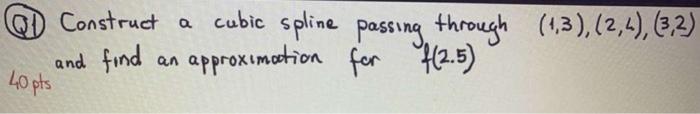 Q1) Construct a cubic spline passing through (1,3), (2,4), (3,2)
and find an approximation for f(2.5)
40 pts